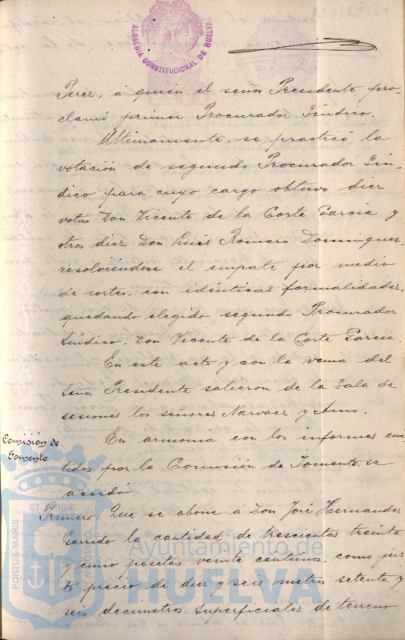 ALCALDIA CONSTITUCIONAL DE HUELVA
Perez, á quién el señor Presidente pro-
clamó primer Procurador Síndico.
Ultimamente, se practicó la
votación de segundo Procurador Sín-
dico para cuyo cargo obtuvo diez
votos Don Vicente de la Corte García y
otros diez Don Luis Romero Dominguez,
resolviéndose el empate por medio
de sorteo, con idénticas formalidades,
quedando elegido segundo Procurador
Síndico, Don Vicente de la Corte García.
En este acto y con la venia del
Señor Presidente salieron de la Sala de
sesiones los señores Narvaez y
Comisión de
Fomento
En armonia con los informes emi-
tidos por la Comisión de Fomento, se
acordó:
Primero. Que se abone a Don José Hernandez
Garrido la cantidad de trescientas treinta
y cinco pesetas veinte centimos, como jus-
to precio de diez y seis metros setenta y
seis decimetros superficiales de terreno
PORTUS MARIS
ET TERRAE
Ayuntamiento de
HUELVA